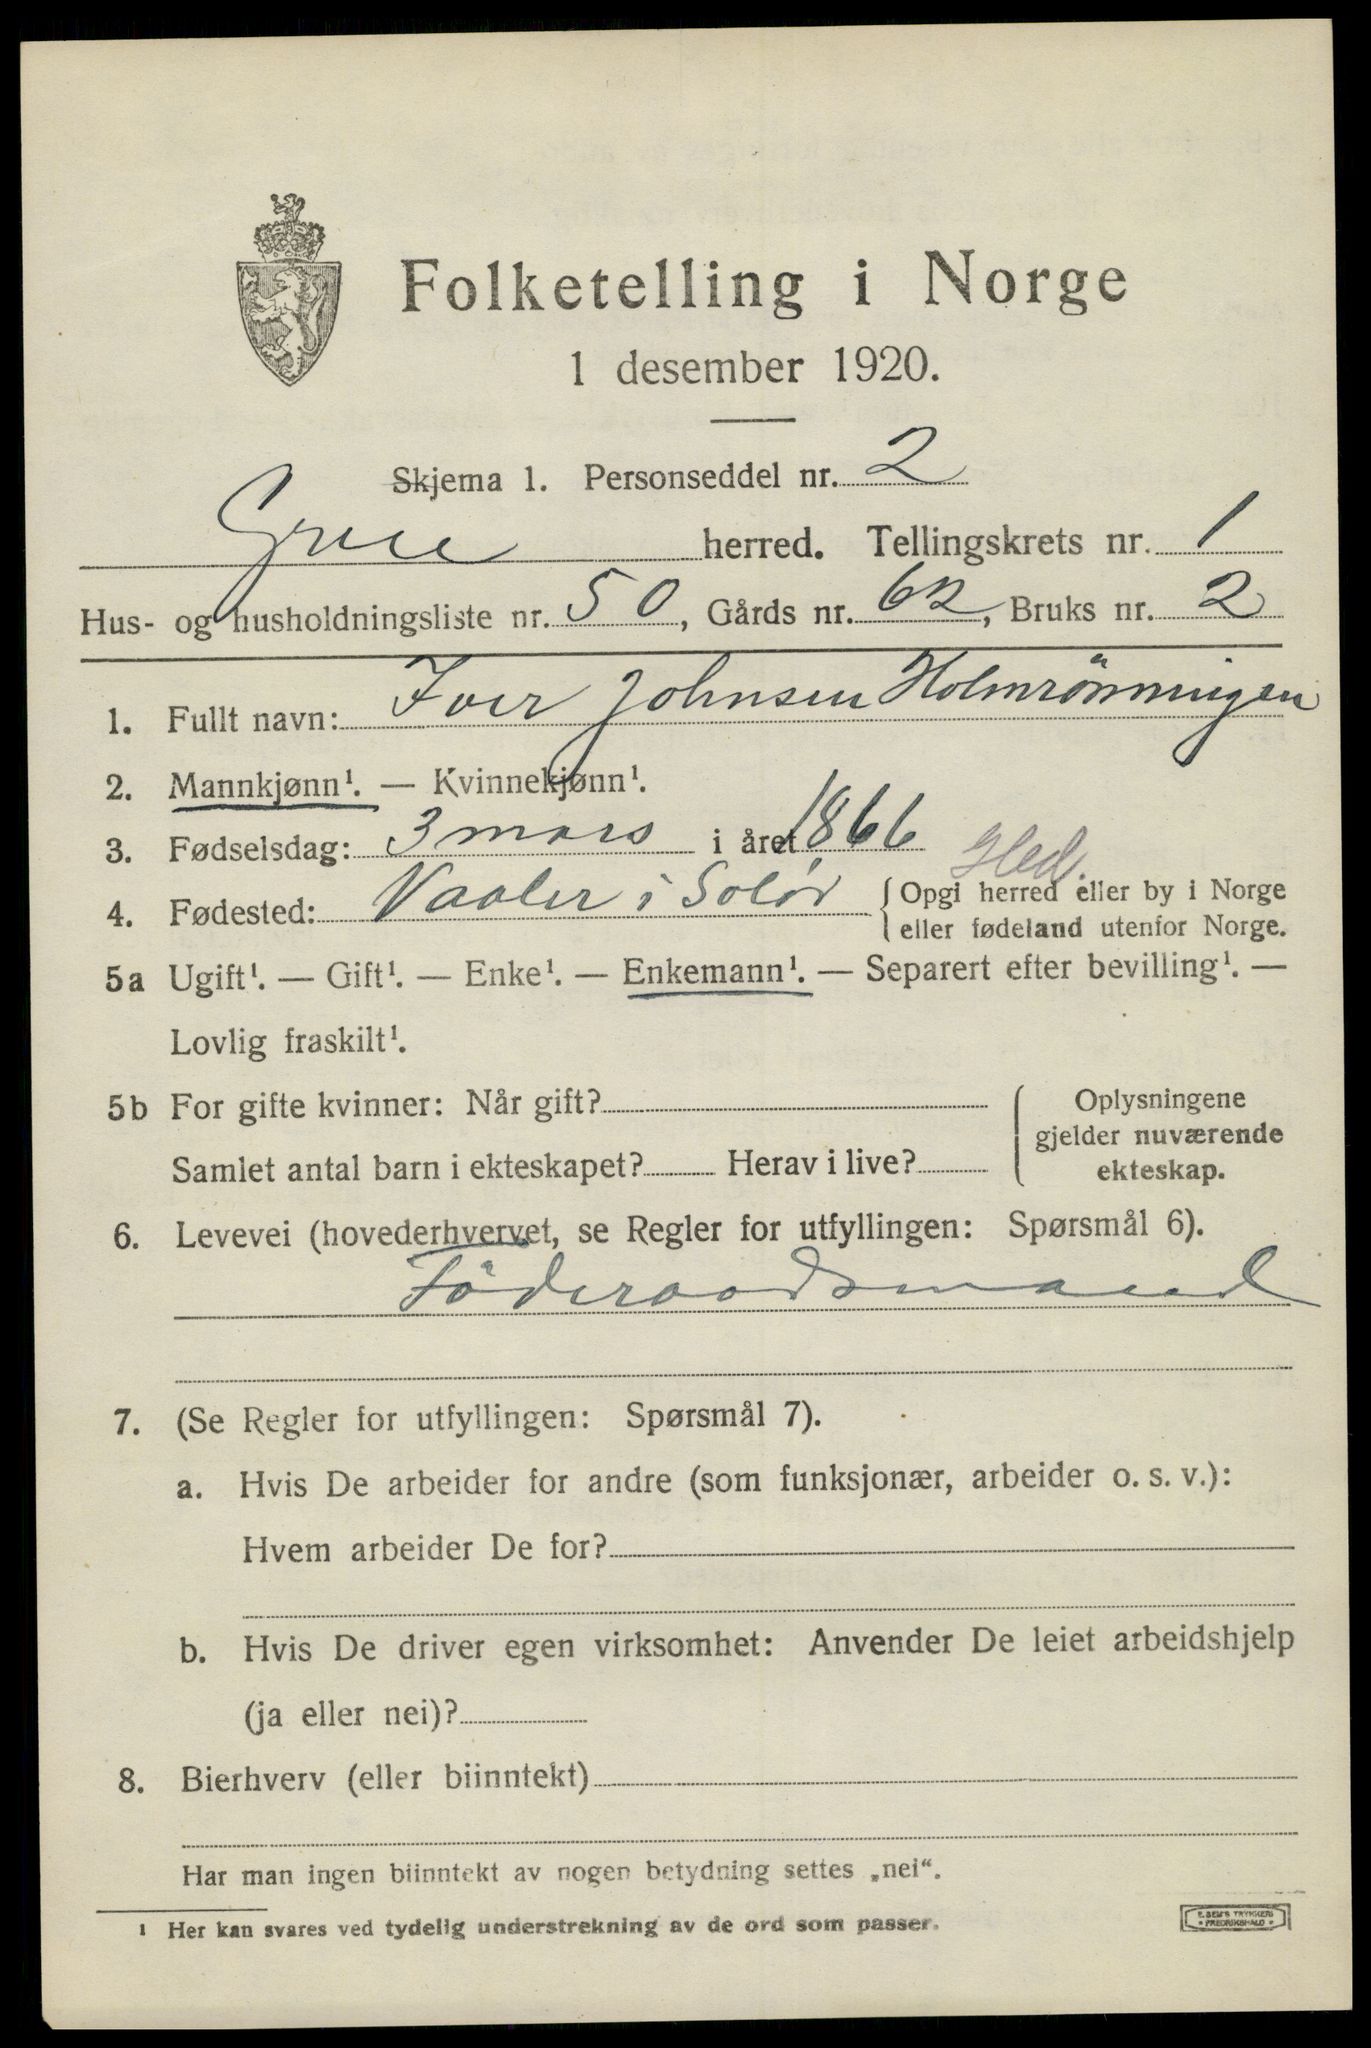 Folketelling i Norge
1 desember 1920.
Skjema 1. Personseddel nr. 2
Grue herred. Tellingskrets nr. 1
Hus- og husholdningsliste nr. 50, Gårds nr. 62, Bruks nr. 2
1. Fullt navn: Iver Johnsen Holmrönningen
2. Mannkjønn¹. — Kvinnekjønn¹.
3. Fødselsdag: 3 mars i året 1866
Hed.
4. Fødested: Vaaler i Solør { Opgi herred eller by i Norge
eller fødeland utenfor Norge.
5a Ugift¹. — Gift¹. — Enke¹. — Enkemann¹. — Separert efter bevilling¹. —
Lovlig fraskilt¹.
5b For gifte kvinner: Når gift?
Samlet antal barn i ekteskapet? Herav i live?
Oplysningene
gjelder nuværende
ekteskap.
6. Levevei (hovederhvervet, se Regler for utfyllingen: Spørsmål 6).
Föderaadsmand
7. (Se Regler for utfyllingen: Spørsmål 7).
a. Hvis De arbeider for andre (som funksjonær, arbeider o. s. v.):
Hvem arbeider De for?
b. Hvis De driver egen virksomhet: Anvender De leiet arbeidshjelp
(ja eller nei)?
8. Bierhverv (eller biinntekt)
Har man ingen biinntekt av nogen betydning settes „nei“.
¹ Her kan svares ved tydelig understrekning av de ord som passer.
E. SEM'S TRYKKERI
FREDRIKSHALD